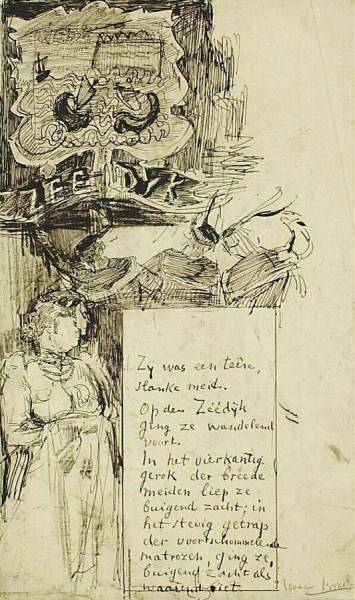 ZEEDYK
Zy was een teere,
slanke meid.
Op den Zéédyk
ging ze wandelend
voort.
In het vierkantig
gerok der breede
meiden liep ze
buigend zacht; in
het stevig getrap
der voortschommelende
matrozen, ging ze,
buigend zacht als
waaiend riet
Isaac Israels